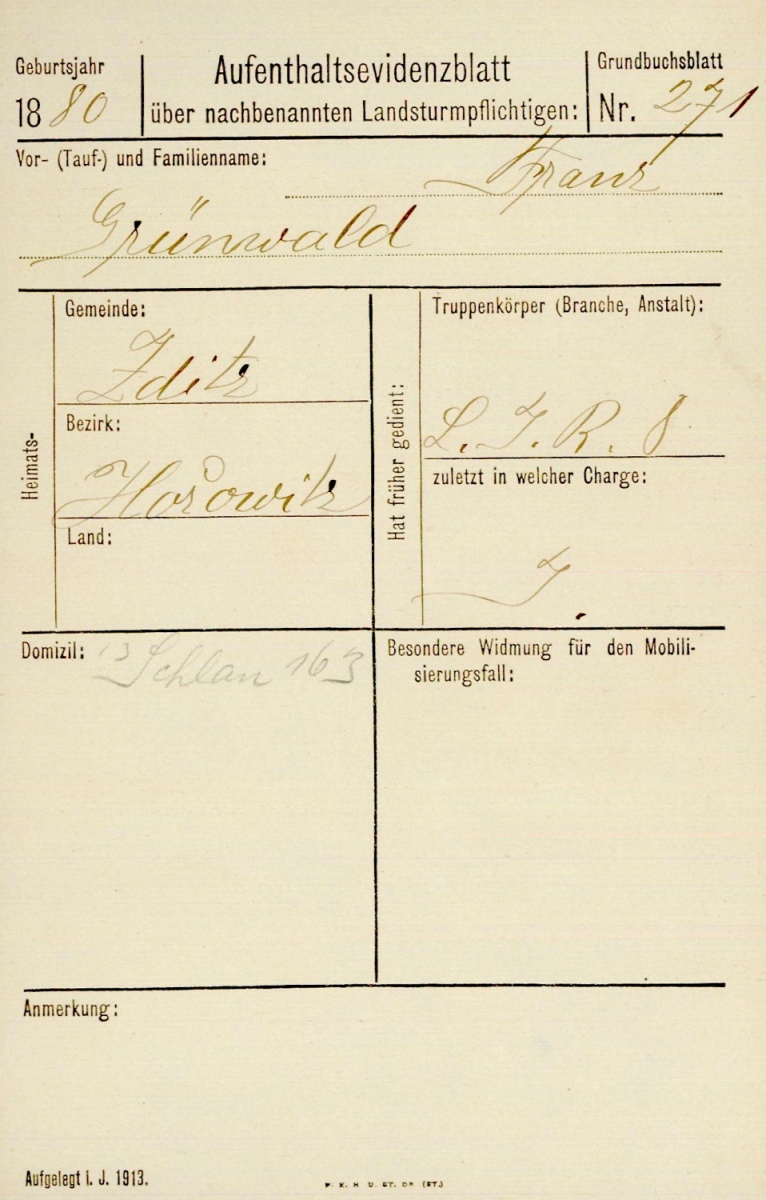 Geburtsjahr
1880
Aufenthaltsevidenzblatt
über nachbenannten Landsturmpflichtigen:
Grundbuchsblatt
Nr. 271
Vor- (Tauf-) und Familienname:
Franz
Grünwald
Heimats-
Gemeinde:
Zditz
Bezirk:
Hořowitz
Land:
Hat früher gedient:
Truppenkörper (Branche, Anstalt):
L. I. R. 8
zuletzt in welcher Charge:
I.
Domizil:
Schlan 163
Besondere Widmung für den Mobili-
sierungsfall:
Anmerkung:
Aufgelegt i. J. 1913.